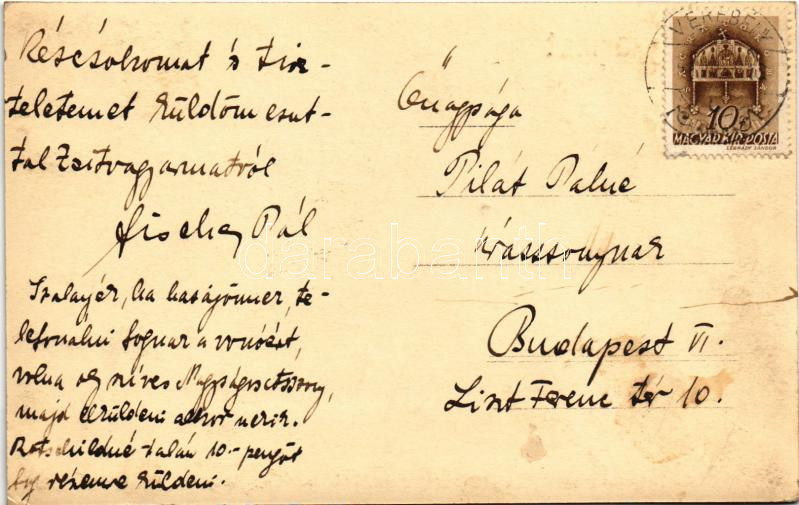 Kézcsókomat és tisz-
teletemet küldöm ezut-
tal Zsitvagyarmatról
Fischer Pál
Szalayér, ha hazajönnek, te-
lefonálni fognak a vonóért,
volna oly szíves Nagyságos Asszony,
majd elküldeni akkor nekik.
Rotschildné talán 10.- pengőt
fog részemre küldeni.
Őnagysága
Pilát Pálné
úrasszonynak
Budapest VI.
Liszt Ferenc tér 10.
VEREBÉLY
10
MAGYAR KIR. POSTA
LÉGRÁDY SÁNDOR
darabanth